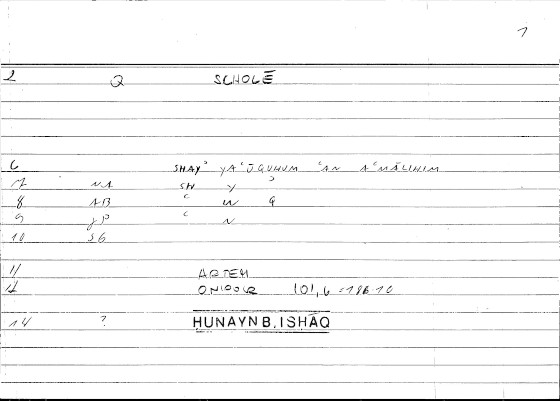 1
2 Q SCHOLĒ
6 SHAYʾ YAʿŪQUHUM ʿAN AʿMĀLIHIM
7 NA SH Y ʾ
8 AB ʿ W Q
9 JP ʿ N
10 SG
11 ARTEM
12 ONIROCR 101,6 = 186 10
14 ?
HUNAYN B. ISHĀQ